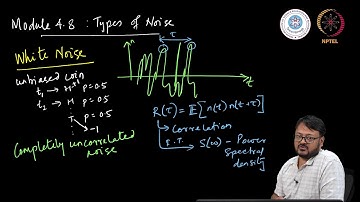 Module 4.8 : Types of Noise
NPTEL
White Noise
unbiased coin
t₁ → H +1 p=0.5
t₂ → H p=0.5
T p=0.5
-1
Completely uncorrelated noise
τ
t
R(τ) = E[n(t) n(t+τ)]
Correlation
F.T. → S(ω) - Power
Spectral
density